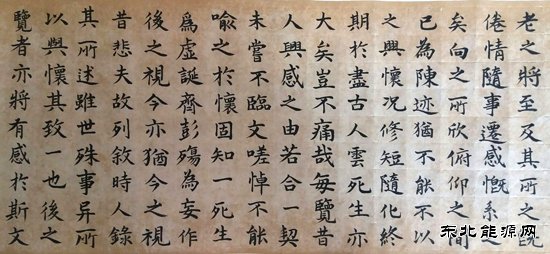 老之將至及其所之既
倦情隨事遷感慨系之
矣向之所欣俯仰之間
已為陳迹猶不能不以
之興懷況修短隨化終
期於盡古人雲死生亦
大矣豈不痛哉每覽昔
人興感之由若合一契
未嘗不臨文嗟悼不能
喻之於懷固知一死生
爲虛誕齊彭殤為妄作
後之視今亦猶今之視
昔悲夫故列敘時人錄
其所述雖世殊事异所
以興懷其致一也後之
覽者亦將有感於斯文
东北能源网